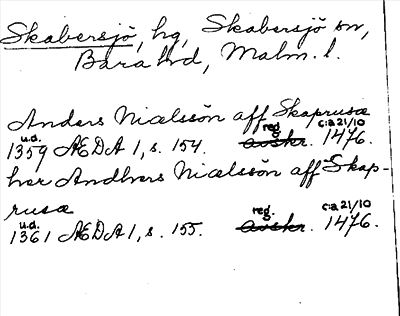 Skabersjö, hg, Skabersjö sn,
Bara hd, Malm. l.
Anders Niælssön aff Skaprusæ
u.d. reg. c:a 21/10
1359 ÆDA 1, s. 154. avskr. 1476.
her Andhers Niælssön aff Skap-
rusæ
u.d. reg. c:a 21/10
1361 ÆDA 1, s. 155. avskr. 1476.